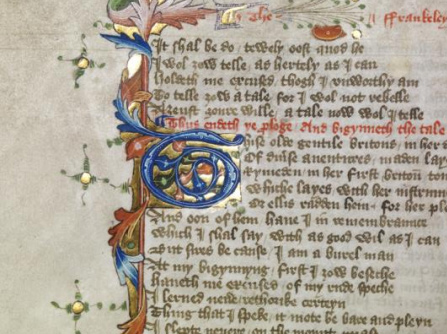 The ffrankeleyn
It shal be do trewely oost quod he
I wol zow telle as hertely as I can
Holdeth me excused thogh I vnworthy am
To telle zow a tale for I wol not rebelle
Azeinst zoure wille a tale now wol I telle
Thus endeth þe ploge And bigynneth the tale
ise olde gentile britons in her
Of diuise auentures maden lay
Rymeden in her first briton ton
Whiche layes with her instrume
Or ellis radden hem for her ple
And oon of hem haue I in remembraunce
Which I shal say with as good wil as I can
But sires be cause I am a burel man
At my bigynnyng first I zow beseche
Haueth me excused of my rude speche
I lerned neuer rethorike certeyn
Thing that I speke it mote be bare and pleyn
I slepte neuere on the mount